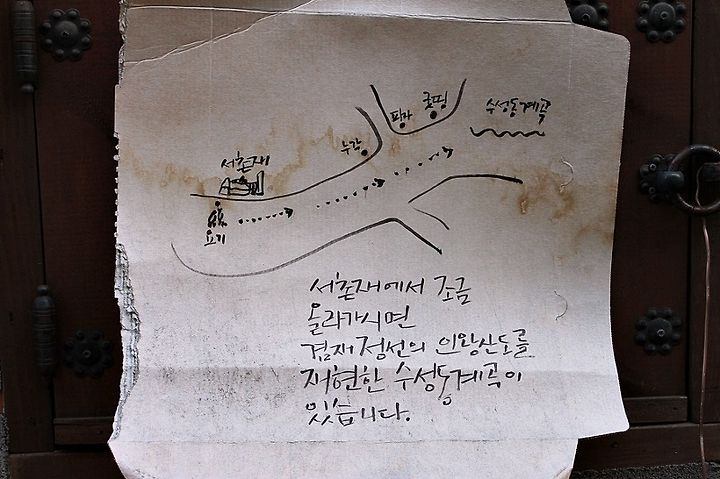 수성동계곡
누각
서촌재
요기
서촌재에서 조금
올라가시면
겸재정선의 인왕산도를
재현한 수성동계곡이
있습니다.